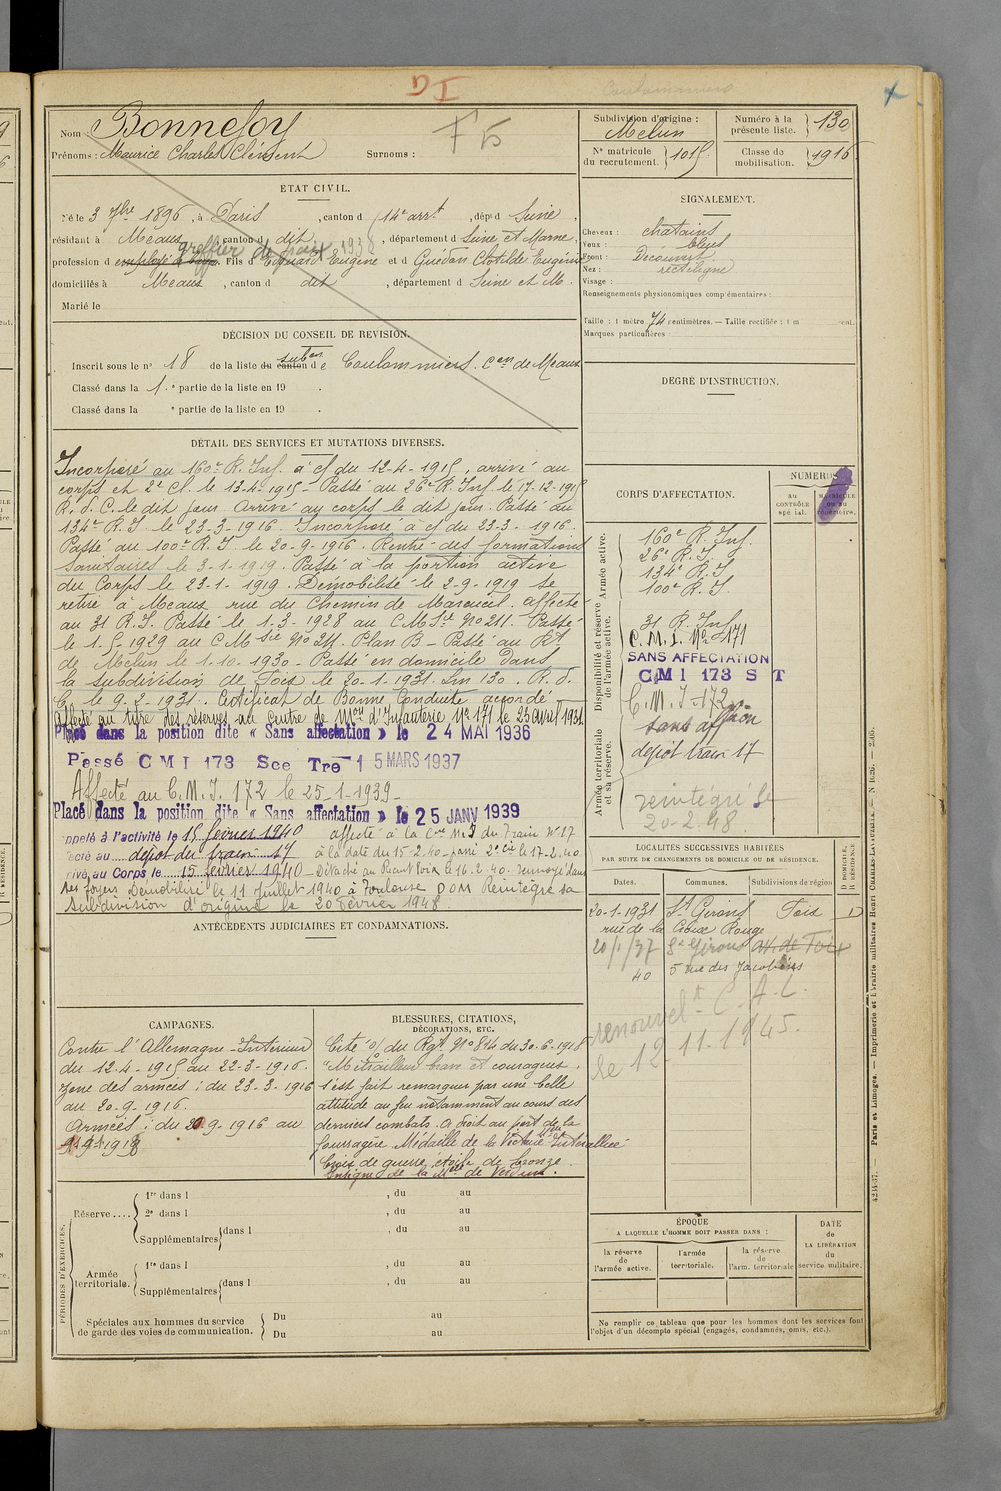 Nom : Bonnefoy
Prénoms : Maurice Charles Clément Surnoms :
F 5
Subdivision d'origine :
Melun
Numéro à la présente liste. 130
N° matricule du recrutement. 1015
Classe de mobilisation. 1916
ÉTAT CIVIL.
Né le 3 7bre 1896, à Paris, canton d 14e arrt, dép. d Seine,
résidant à Meaux, canton d dit, département d Seine et Marne,
greffier de paix 1938
profession d employé Fils d'Edouard Eugène et d Guédon Clotilde Eugénie
domiciliés à Meaux, canton d dit, département d Seine et M.
Marié le
SIGNALEMENT.
Cheveux : chatains
Yeux : bleus
Front : Découvert
Nez : rectiligne
Visage :
Renseignements physionomiques complémentaires :
Taille : 1 mètre 74 centimètres. — Taille rectifiée : 1 m cent.
Marques particulières :
DÉCISION DU CONSEIL DE REVISION.
Inscrit sous le n° 18 de la liste du canton de subon Coulommiers. Con de Meaux
Classé dans la 1e partie de la liste en 19 .
Classé dans la e partie de la liste en 19 .
DEGRÉ D'INSTRUCTION.
DÉTAIL DES SERVICES ET MUTATIONS DIVERSES.
Incorporé au 160e R. Inf. à cf du 12-4-1915, arrivé au
corps et 2e Cl. le 13-4-1915 - Passé au 26e R. Inf. le 17-12-1915
R. d. C. le dit jour. Arrivé au corps le dit jour. Passé au
134e R.I. le 23-3-1916. Incorporé à cf du 23-3-1916.
Passé au 100e R.I. le 20-9-1916. Rentré des formations
sanitaires le 3-1-1919. Passé à la portion active
du Corps le 23-1-1919. Démobilisé le 2-9-1919 se
retire à Meaux rue du Chemin de Mareuil. affecté
au 31 R.I. Passé le 1-3-1928 au C M Ist No 211. Passé
le 1-5-1929 au C M No 211. Plan B - Passé au Rt
de Melun le 1-10-1930 - Passé en domicile dans
la subdivision de Foix le 20-1-1931. Sm 130. R.d.
C. le 9-2-1931. Certificat de Bonne Conduite accordé
affecté au titre des réserves au Centre de Mon d'Infanterie No 171 le 25 avril 1934
Placé dans la position dite « Sans affectation » le 24 MAI 1936
Passé CMI 173 Sce Tre 15 MARS 1937
Affecté au C.M.I. 172 le 25-1-1939 -
Placé dans la position dite « Sans affectation » le 25 JANV 1939
appelé à l'activité le 15 février 1940 affecté à la Cie du Train No 17
dépôt du train 17 à la date du 15-2-40 - passé 2e Cie le 17-2-40
Arrivé au Corps le 15 février 1940 - Détaché au Rect Foix le 16-2-40. renvoyé dans
ses foyers Démobilisé le 11 juillet 1940 à Toulouse DOM Réintégré sa
subdivision d'origine le 20 Février 1948
CORPS D'AFFECTATION.
NUMÉROS
au contrôle spécial. matricule ou au répertoire.
Armée active.
160e R. Inf.
26e R.I.
134e R.I.
100e R.I.
Disponibilité et réserve de l'armée active.
31 R. Inf.
C.M.I. No 171
SANS AFFECTATION
CMI 173 S T
C.M.I-172
Armée territoriale et sa réserve.
sans affon
dépôt train 17
réintégré le
20-2-48
LOCALITÉS SUCCESSIVES HABITÉES
PAR SUITE DE CHANGEMENTS DE DOMICILE OU DE RÉSIDENCE.
Dates. Communes. Subdivisions de région D DOMICILE, R RÉSIDENCE
20-1-1931 St Girons Foix D
rue de la Croix Rouge
20/1/37 St Girons
40 5 rue des Jacobins
renouvelt C.A.C.
le 12.11.1945.
ANTÉCÉDENTS JUDICIAIRES ET CONDAMNATIONS.
CAMPAGNES.
Contre l'Allemagne - Intérieur
du 12-4-1915 au 22-3-1916.
zone des armées : du 23-3-1916
au 20-9-1916.
Armées : du 20 9-1916 au
BLESSURES, CITATIONS, DÉCORATIONS, ETC.
Cité o/ du Rgt No 814 du 30-6-1918
"Mitrailleur brave et courageux.
s'est fait remarquer par une belle
attitude au feu notamment au cours des
derniers combats. a droit au port de la
fourragère Médaille de la Victoire dite Interalliée.
Croix de guerre étoile de bronze.
Insigne de la Mlle de Verdun.
PÉRIODES D'EXERCICES.
Réserve....
1re dans l , du au
2e dans l , du au
Supplémentaires dans l , du au
Armée territoriale.
1re dans l , du au
Supplémentaires dans l , du au
Spéciales aux hommes du service de garde des voies de communication.
Du au
Du au
ÉPOQUE
A LAQUELLE L'HOMME DOIT PASSER DANS :
la réserve de l'armée active. l'armée territoriale. la réserve de l'arm. territoriale
DATE de LA LIBÉRATION du service militaire.
Ne remplir ce tableau que pour les hommes dont les services font
l'objet d'un décompte spécial (engagés, condamnés, omis, etc.).